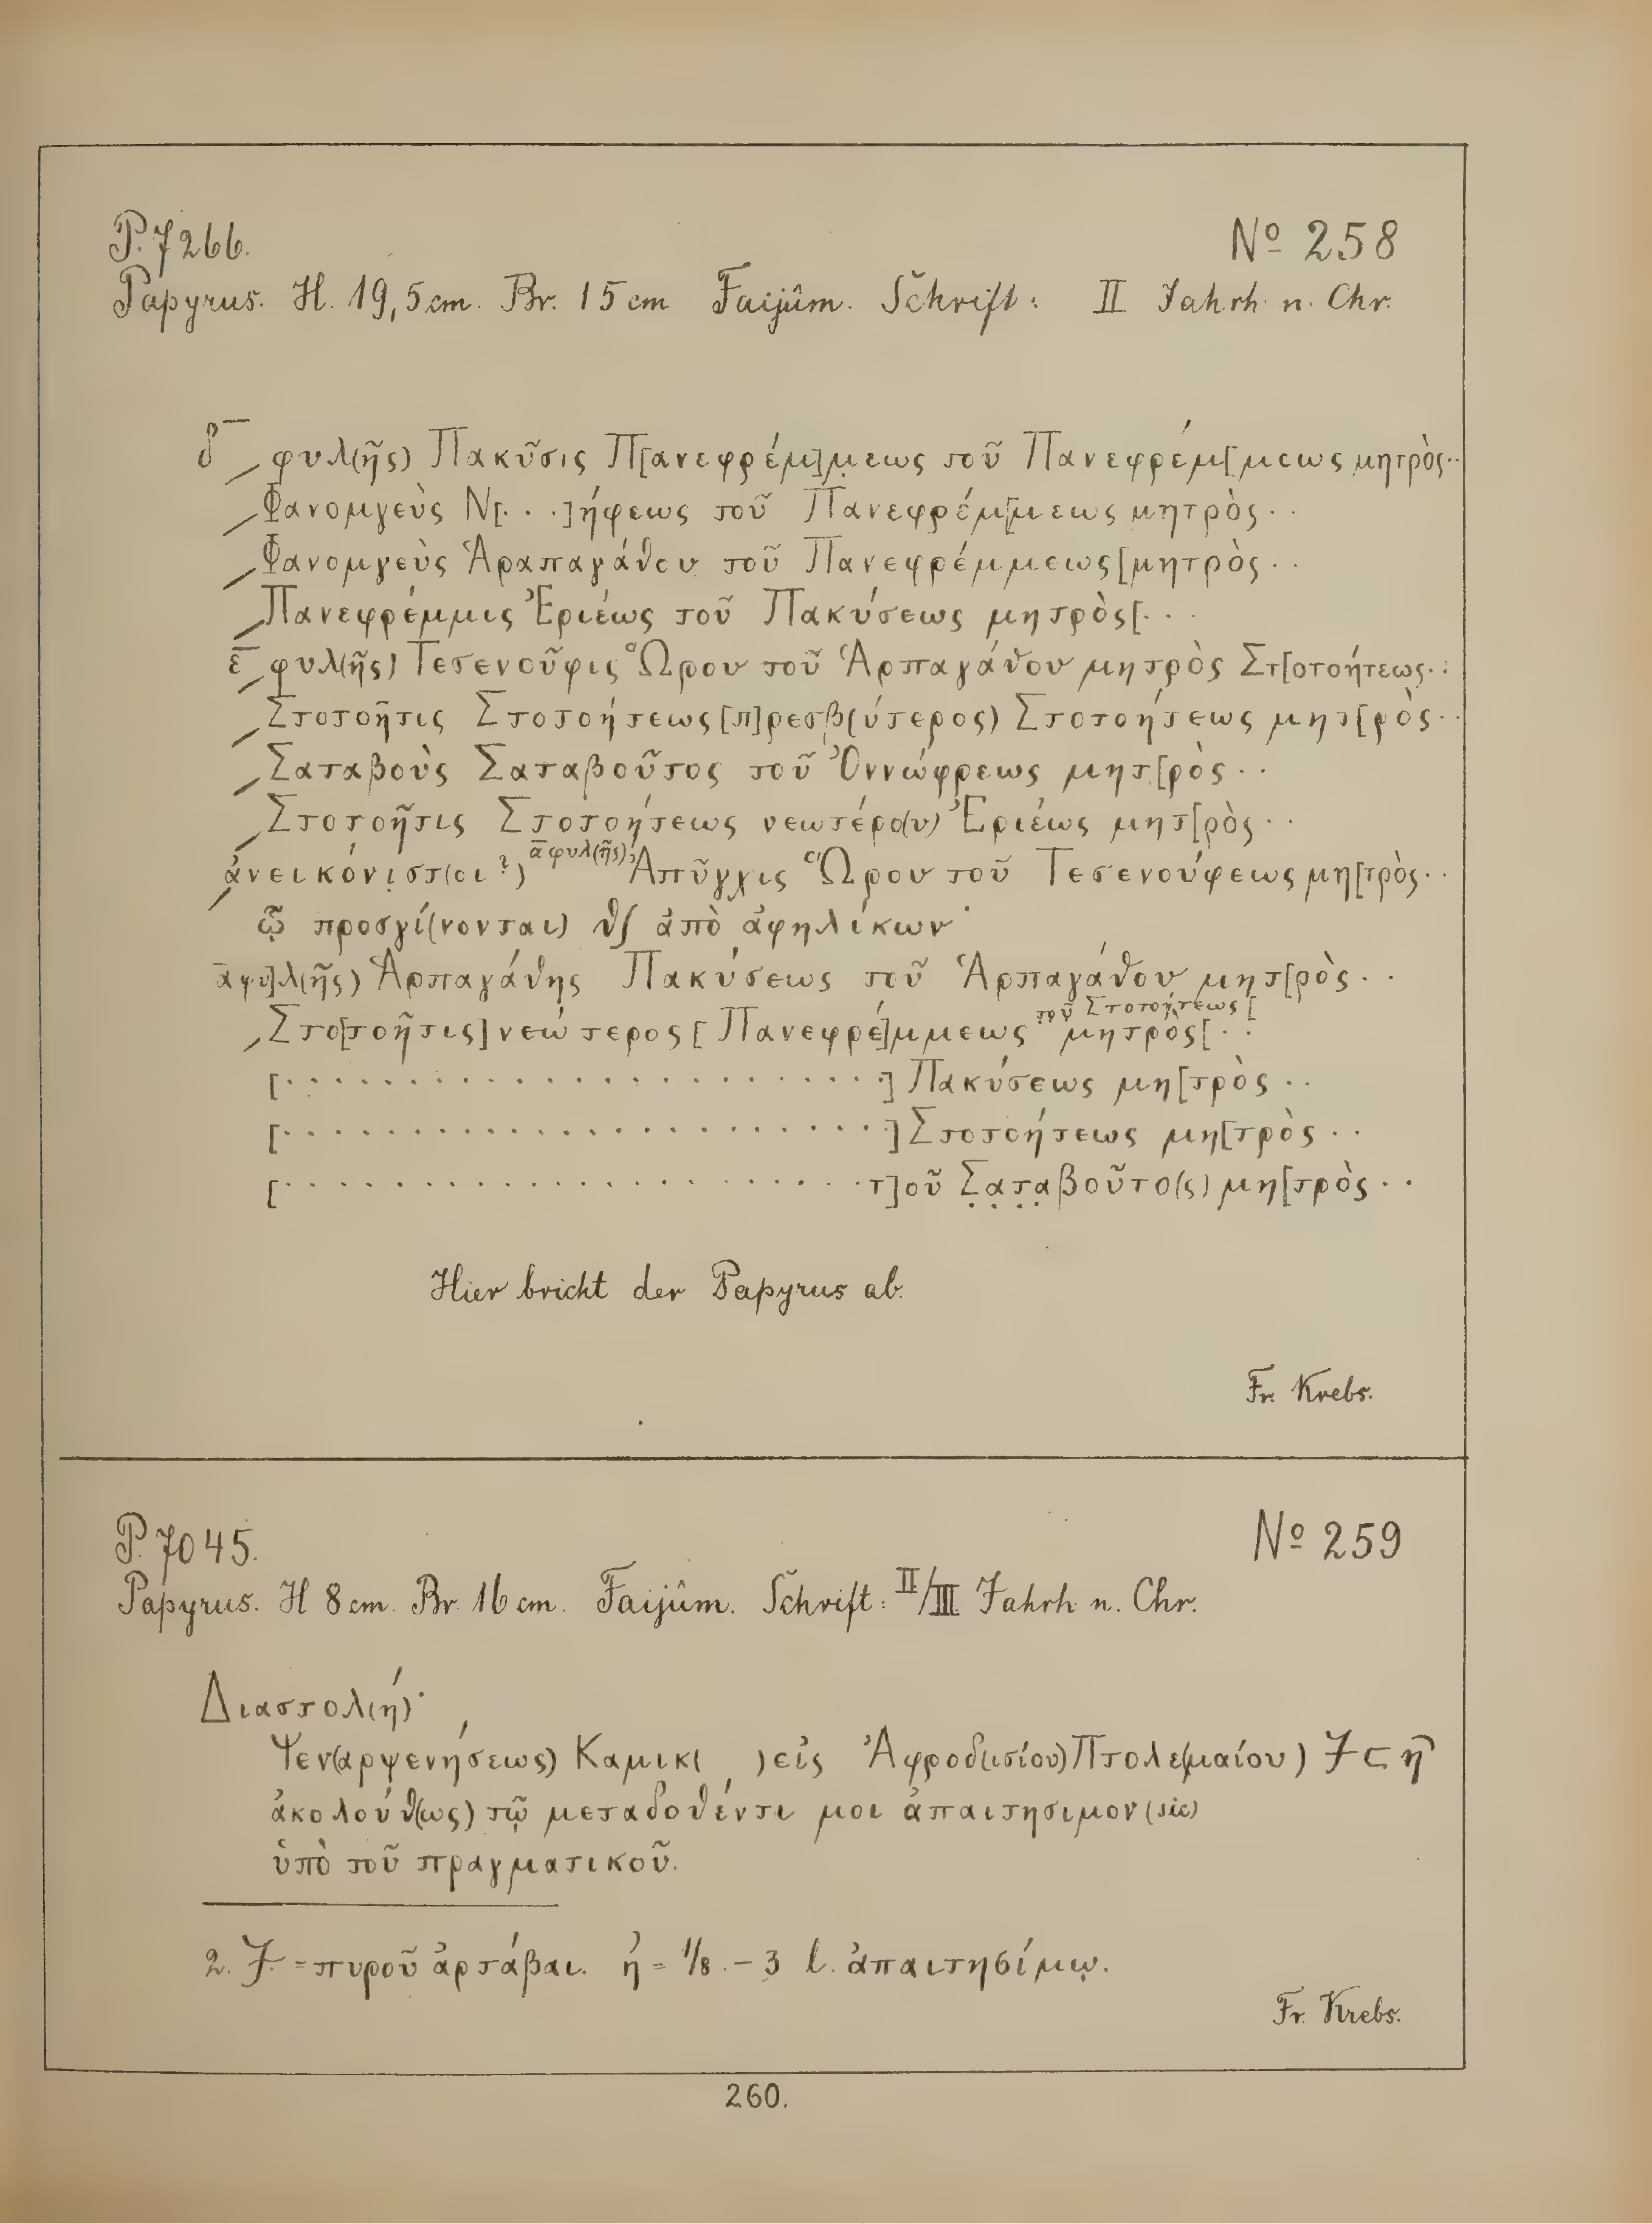 P. 7266. Nº 258
Papyrus. H. 19,5 cm. Br. 15 cm Faijûm. Schrift: II Jahrh. n. Chr.
δ̅ φυλ(ῆς) Πακῦσις Π[ανεφρέμ]μ̣εως τοῦ Πανεφρέμ[μεως μητρὸς··
Φανομγεὺς Ν[· · ·]ήφεως τοῦ Πανεφρέμ[μεως μητρὸς··
Φανομγεὺς Ἁραπαγάθου τοῦ Πανεφρέμμεως[μητρὸς··
Πανεφρέμμις Ἐριέως τοῦ Πακύσεως μητρὸς[· · ·
ε̅ φυλ(ῆς) Τεσενοῦφις Ὥρου τοῦ Ἁρπαγάθου μητρὸς Στ[οτοήτεως··
Στοτοῆτις Στοτοήτεως [π]ρεσβ(ύτερος) Στοτοήτεως μητ[ρὸς··
Σαταβοὺς Σαταβοῦτος τοῦ Ὀννώφρεως μητ[ρὸς··
Στοτοῆτις Στοτοήτεως νεωτέρο(υ) Ἐριέως μητ[ρὸς··
ἀνεικόνιστ(οι?) α̅ φυλ(ῆς) Ἀπῦγχις Ὥρου τοῦ Τεσενούφεως μη[τρὸς··
ᾧ προσγί(νονται) θ∫ ἀπὸ ἀφηλίκων·
α̅ φυ]λ(ῆς) Ἁρπαγάθης Πακύσεως τοῦ Ἁρπαγάθου μητ[ρὸς··
τοῦ Στοτοήτεως [
Στο[τοῆτις] νεώτερος [Πανεφρέ]μμεως μητρὸς[··
[· · · · · · · · · · · · · · · · · · · ·] Πακύσεως μη[τρὸς··
[· · · · · · · · · · · · · · · · · · · ·] Στοτοήτεως μη[τρὸς··
[· · · · · · · · · · · · · · · · · · · τ]οῦ Σ̣α̣τ̣α̣βοῦτο(ς) μη[τρὸς··
Hier bricht der Papyrus ab.
Fr. Krebs.
P. 7045. Nº 259
Papyrus. H 8 cm. Br. 16 cm. Faijûm. Schrift: II/III Jahrh n. Chr.
Διαστολ(ή)·
Ψεν(αρψενήσεως) Καμικ( ) εἰς Ἀφροδ(ισίου) Πτολε(μαίου) Ⳁ ⊂ η
ἀκολούθ(ως) τῷ μεταδοθέντι μοι ἀπαιτησιμον (sic)
ὑπὸ τοῦ πραγματικοῦ.
2. Ⳁ = πυροῦ ἀρτάβαι. ή = 1/8. – 3 l. ἀπαιτησίμῳ.
Fr. Krebs.
260.